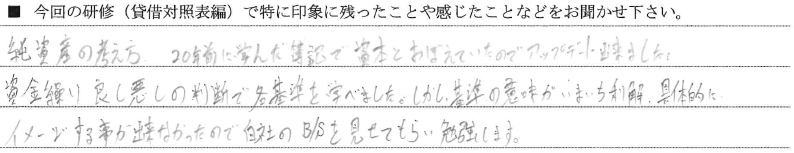 ■ 今回の研修（貸借対照表編）で特に印象に残ったことや感じたことなどをお聞かせ下さい。
純資産の考え方 20年前に学んだ簿記で資本とおぼえていたのでアップデート出来ました。
資金繰り良し悪しの判断で各基準を学べました。しかし基準の意味がいまいち利解、具体的に
イメージする事が出来なかったので自社のB/Sを見せてもらい勉強します。